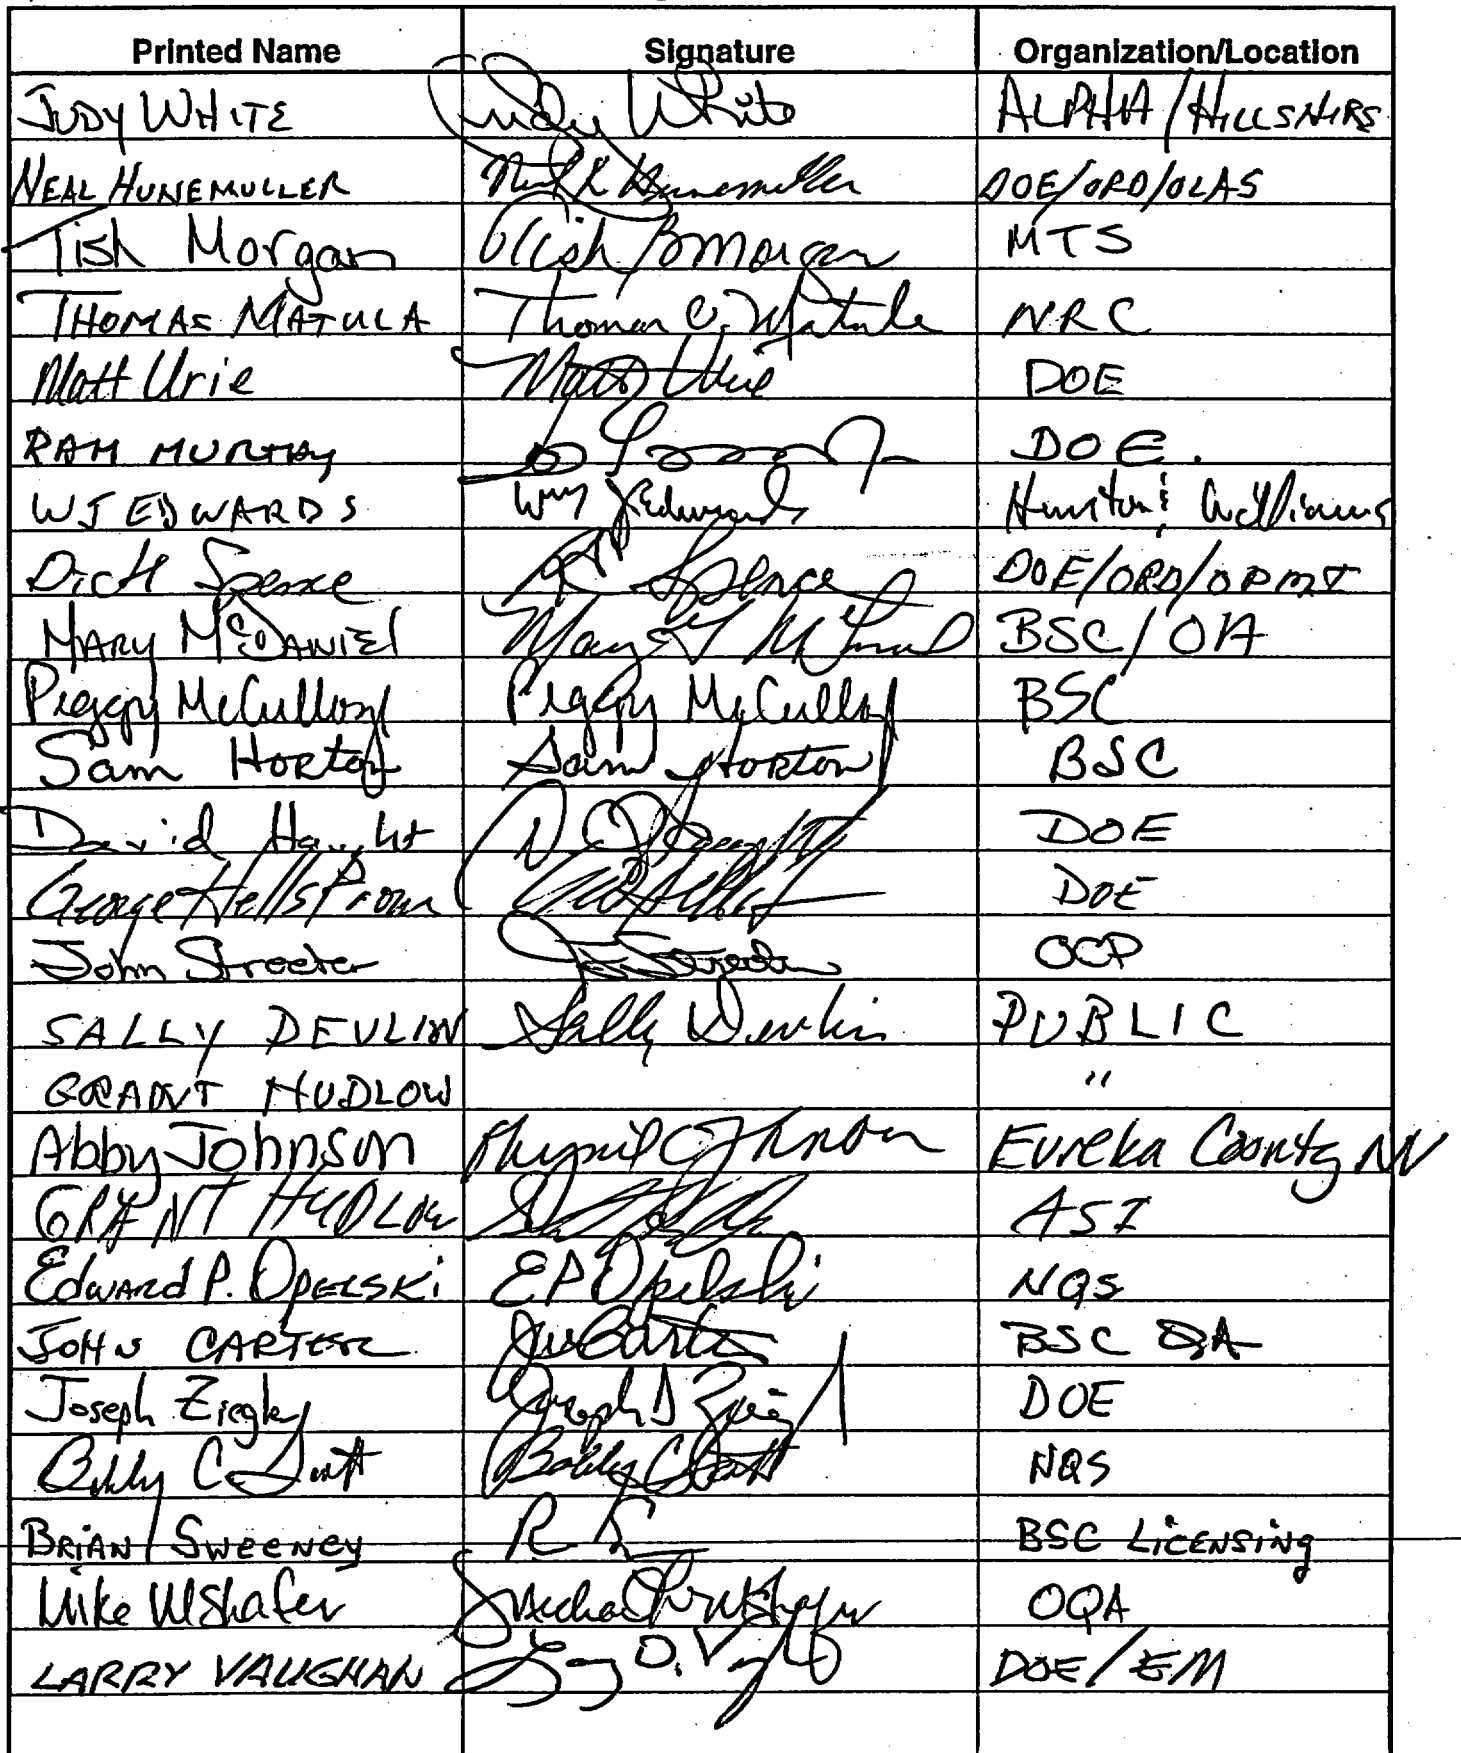 Printed Name Signature Organization/Location
JUDY WHITE Judy White ALPHA/HILLSHIRE
NEAL HUNEMULLER Neal K Hunemuller DOE/ORD/OLAS
Tish Morgan Tish B Morgan MTS
THOMAS MATULA Thomas C. Matula NRC
Matt Urie Matt Urie DOE
RAM MURTHY DOE.
WJ EDWARDS Wm J Edwards Hunton & Williams
Dick Spence Spence DOE/ORD/OPMI
MARY McDANIEL Mary BSC/
Peggy McCullough Peggy McCullough BSC
Sam HORTON Sam HORTON BSC
David Haught DOE
George Hellstrom DOE
John Streeter Streeter OCP
SALLY DEVLIN Sally Devlin PUBLIC
GRANT HUDLOW "
Abby Johnson Johnson Eureka County NV
GRANT HUDLOW ASI
Edward P. OPELSKi E P Opelski NQS
JOHN CARTER Carter BSC QA
Joseph Ziegler Joseph D Ziegler DOE
Bobby C Bobby C NQS
BRIAN SWEENEY BSC LICENSING
Mike Ulshafer Michael Ulshafer OQA
LARRY VAUGHAN D. DOE/EM